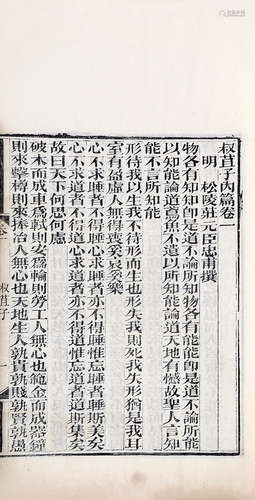 叔苴子內篇卷一
明 松陵莊元臣忠甫撰
物各有知知卽是道不論所知物各有能能卽是道不論所能
以知能論道鳶魚不遺以所知能論道天地有憾故聖人言知
能不言所知能
形待我以生我不待形而生也形失我則死我失形猶是我耳
室有盈虛人無得喪奚哀奚樂
心不求睡者得睡求睡者亦不得睡惟忘睡者睡斯美矣
心不求道者不得道心求道者亦不得道惟忘道者道斯集矣
故曰天下何思何慮
破木而成車為軾則安為輪則勞工人無心也範金而成器鐘
則來擊樽則來捧冶人無心也天地生人孰貴孰賤孰賢孰愚
叔苴子
卷一
一